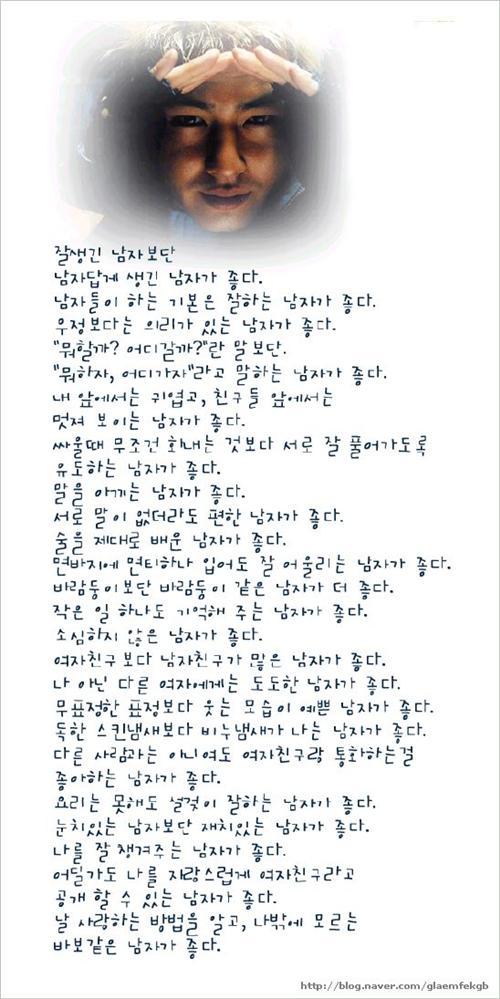 잘생긴 남자보단
남자답게 생긴 남자가 좋다.
남자들이 하는 기본은 잘하는 남자가 좋다.
우정보다는 의리가 있는 남자가 좋다.
"뭐할까? 어디갈까?"란 말 보단.
"뭐하자, 어디가자"라고 말하는 남자가 좋다.
내 앞에서는 귀엽고, 친구들 앞에서는
멋져 보이는 남자가 좋다.
싸울때 무조건 화내는 것보다 서로 잘 풀어가도록
유도하는 남자가 좋다.
말을 아끼는 남자가 좋다.
서로 말이 없더라도 편한 남자가 좋다.
술을 제대로 배운 남자가 좋다.
면바지에 면티하나 입어도 잘 어울리는 남자가 좋다.
바람둥이보단 바람둥이 같은 남자가 더 좋다.
작은 일 하나도 기억해 주는 남자가 좋다.
소심하지 않은 남자가 좋다.
여자친구보다 남자친구가 많은 남자가 좋다.
나 아닌 다른 여자에게는 도도한 남자가 좋다.
무표정한 표정보다 웃는 모습이 예쁜 남자가 좋다.
독한 스킨냄새보다 비누냄새가 나는 남자가 좋다.
다른 사람과는 아니여도 여자친구랑 통화하는걸
좋아하는 남자가 좋다.
요리는 못해도 설겆이 잘하는 남자가 좋다.
눈치있는 남자보단 재치있는 남자가 좋다.
나를 잘 챙겨주는 남자가 좋다.
어딜가도 나를 자랑스럽게 여자친구라고
공개 할 수 있는 남자가 좋다.
날 사랑하는 방법을 알고, 나밖에 모르는
바보같은 남자가 좋다.
http://blog.naver.com/glaemfekgb